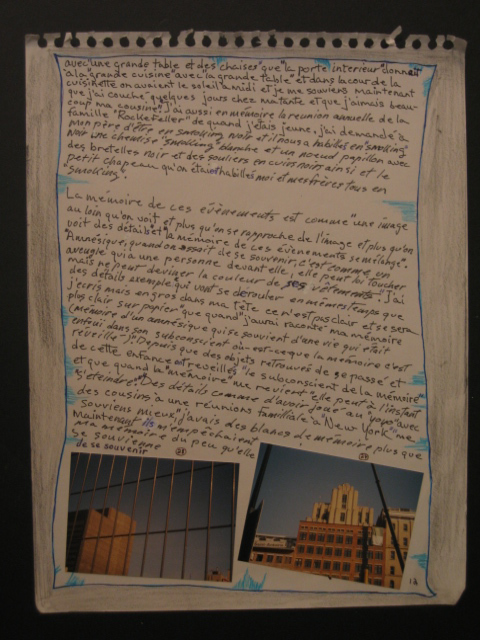 avec "une grande table et des chaises" que "la porte interieur" donnait
"a la" grande cuisine "avec" la grande table" et dans la cour de la
cuisinette on auvient le soleil a midi et je me souviens maintenant
que j'ai couché "quelques jours chez ma tante et que j'aimais beau-
coup ma cousine". J'ai aussi en mémoire la reunion annuelle de la
famille "Rockefeller" de quand j'etais jeune, j'ai demandé à
mon père d'être en smoking noir et il nous a habillés en "smoking"
noir une chemise "smoking" blanche et un noeud papillon avec
des bretelles noir et des souliers en cuir noir ainsi et le
petit chapeau qu'on était habillés moi et mes frères tous en
"smoking".
La mémoire de ces évènements est comme "une image
au loin qu'on voit et plus qu'on se rapproche de l'image et plus qu'on
voit des détails et la mémoire de ces évènements se mélange".
"Amnésique, quand on essait de se souvenir, c'est comme un
aveugle qui a une personne devant elle, elle peut lui toucher
mais ne peut deviner la couleur de ses vêtements". J'ai
des détails exemple qui vont se derouler en mêmes temps que
j'ecris mais en gros dans ma tête ce n'est pas clair et se sera
plus clair sur papier" que quand j'aurai raconté ma mémoire
(mémoire d'un amnésique qui se souvient d'une vie qui était
enfoui dans son subconscient où est-ce que la mémoire c'est
réveillé-). Depuis que des objets retrouvés de se passé et
de cette enfance ont reveillés "le subconscient de la mémoire"
et que quand la "mémoire" me revient "elle peut à l'instant
s'éteindre". Des détails comme d'avoir joué "au "yoyo" avec
des cousins à une réunions familiale "à "New York" me
souviens mieux" j'avais des blancs de mémoire plus que
maintenant ils m'empêchaient
ma mémoire du peu qu'elle
se souvienne
Je se souvenir